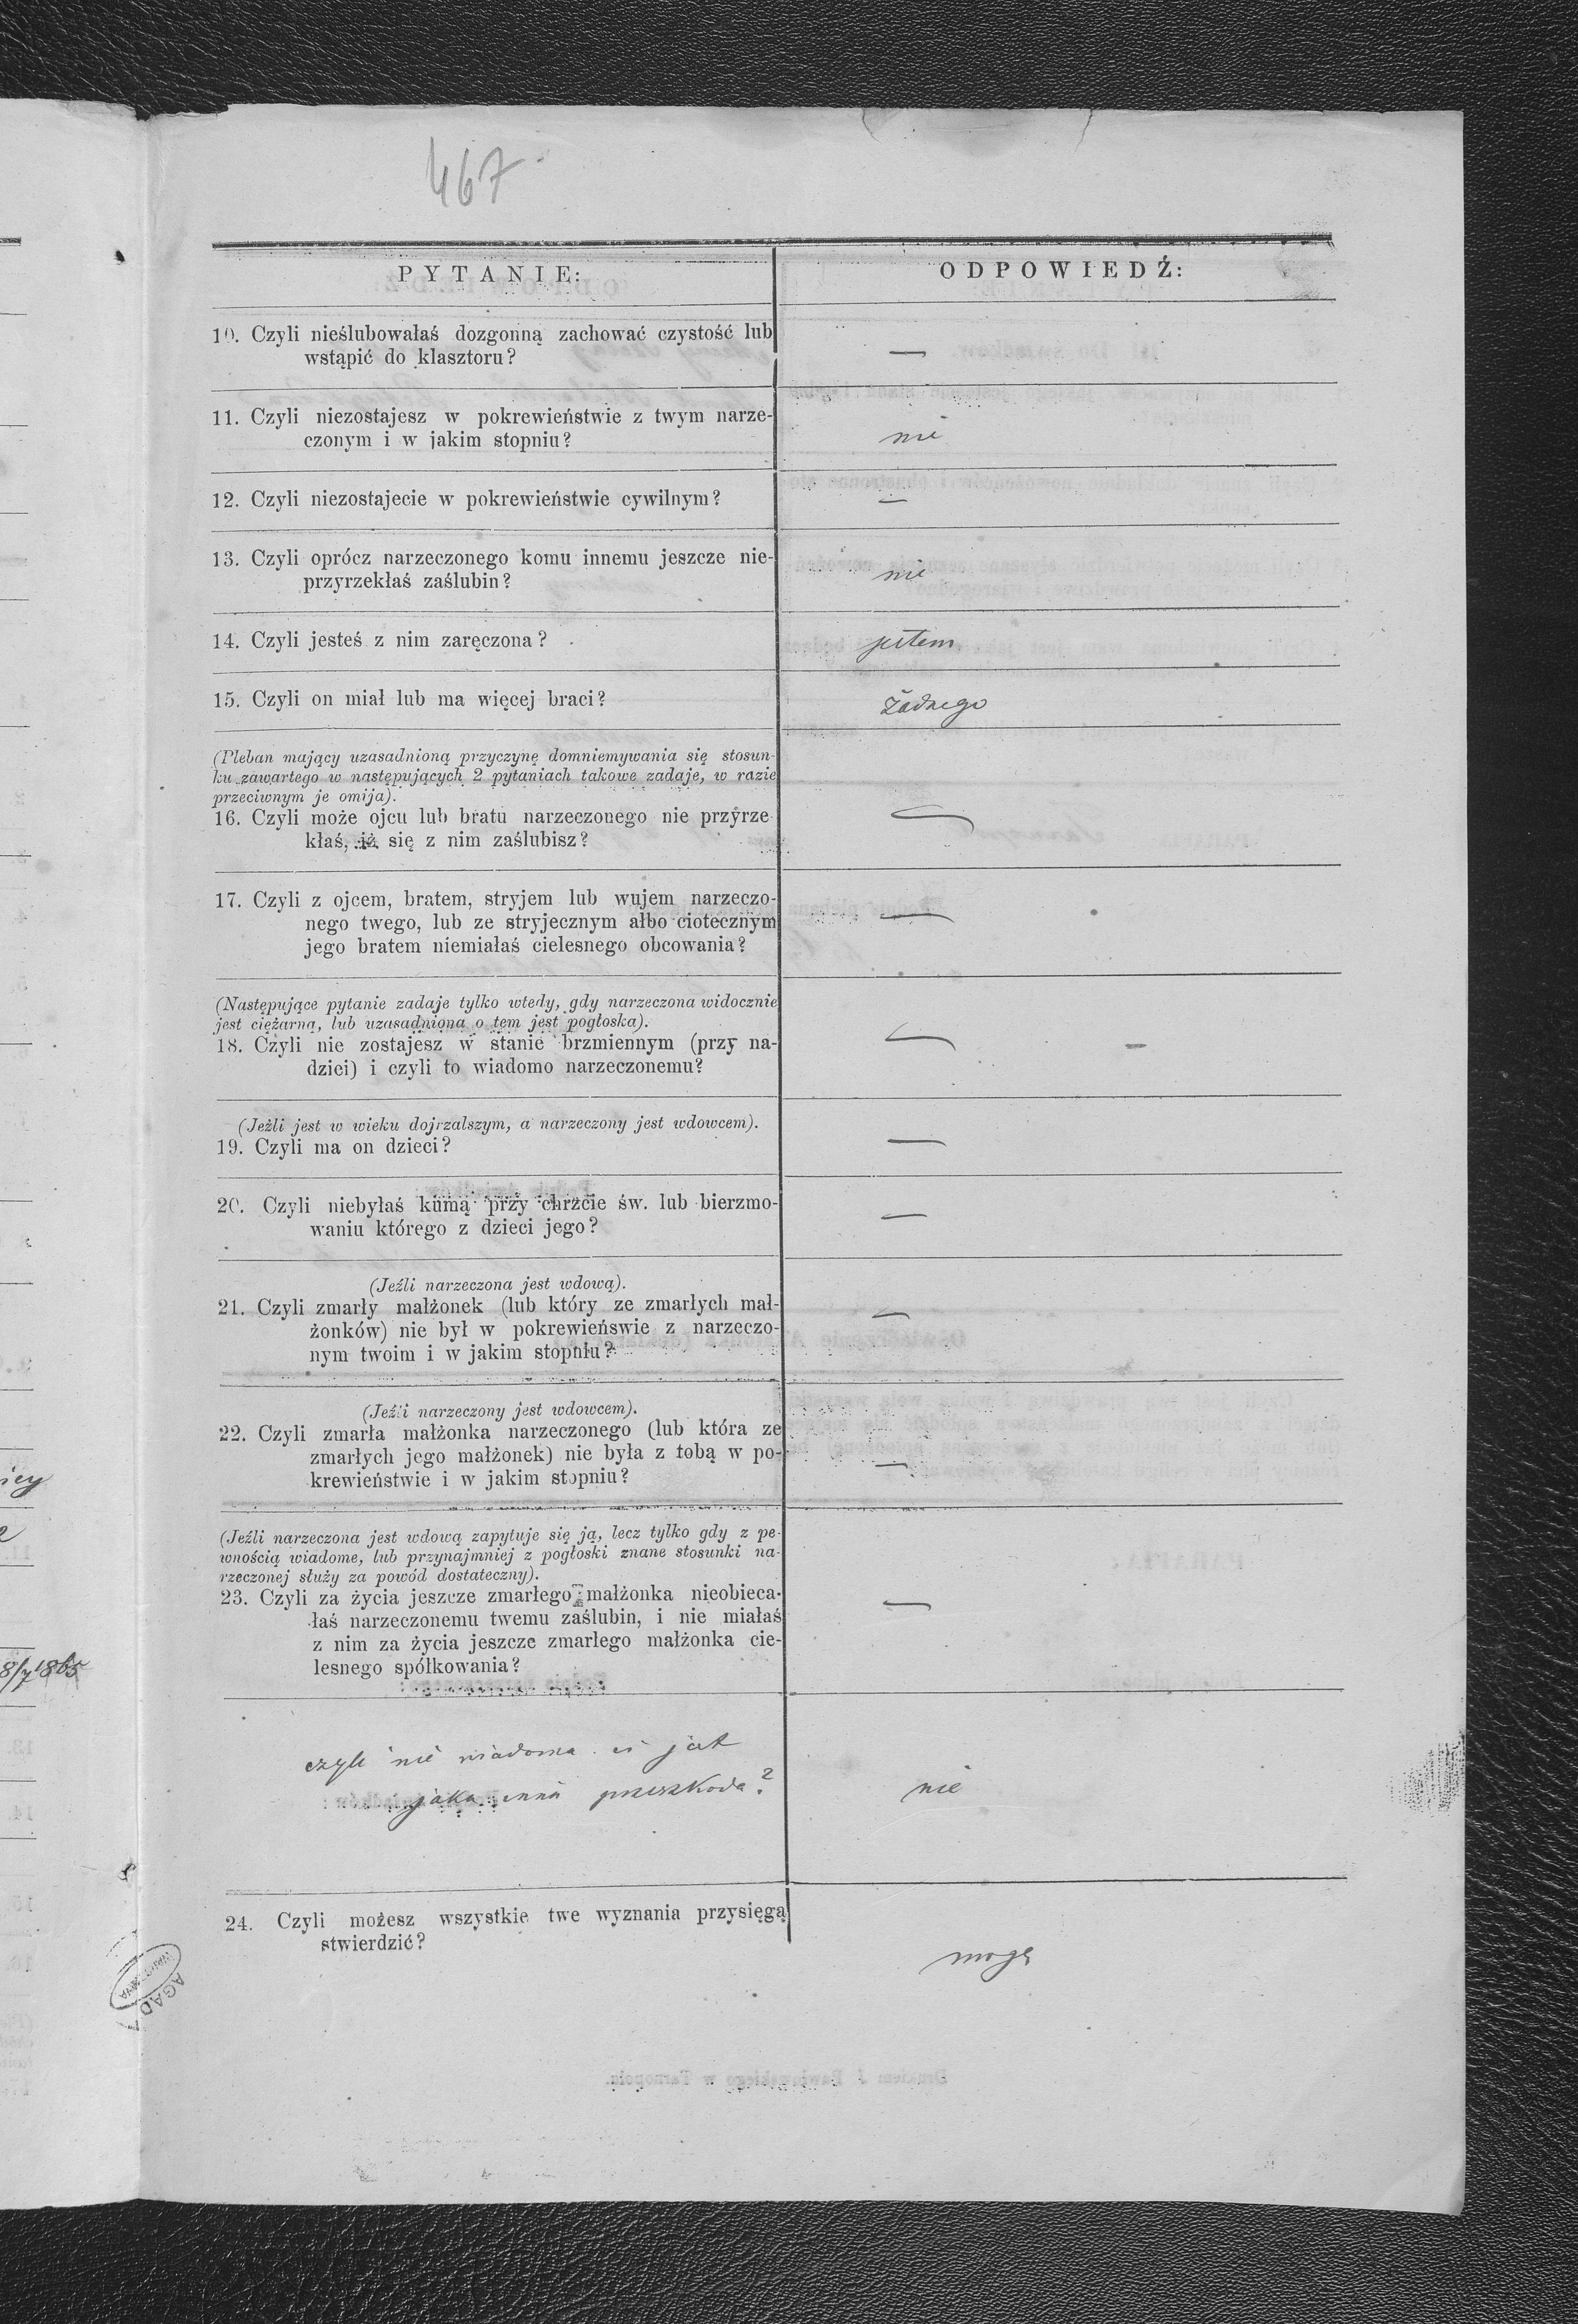 467
PYTANIE:
ODPOWIEDŹ:
10. Czyli nieślubowałaś dozgonną zachować czystość lub
wstąpić do klasztoru?
—
11. Czyli niezostajesz w pokrewieństwie z twym narze-
czonym i w jakim stopniu?
nie
12. Czyli niezostajecie w pokrewieństwie cywilnym?
—
13. Czyli oprócz narzeczonego komu innemu jeszcze nie-
przyrzekłaś zaślubin?
nie
14. Czyli jesteś z nim zaręczona?
jestem
15. Czyli on miał lub ma więcej braci?
żadnego
(Pleban mający uzasadnioną przyczynę domniemywania się stosun-
ku zawartego w następujących 2 pytaniach takowe zadaje, w razie
przeciwnym je omija).
16. Czyli może ojcu lub bratu narzeczonego nie przyrze
kłaś, iż się z nim zaślubisz?
—
17. Czyli z ojcem, bratem, stryjem lub wujem narzeczo-
nego twego, lub ze stryjecznym albo ciotecznym
jego bratem niemiałaś cielesnego obcowania?
—
(Następujące pytanie zadaje tylko wtedy, gdy narzeczona widocznie
jest ciężarną, lub uzasadniona o tem jest pogłoska).
18. Czyli nie zostajesz w stanie brzmiennym (przy na-
dziei) i czyli to wiadomo narzeczonemu?
— —
(Jeźli jest w wieku dojrzalszym, a narzeczony jest wdowcem).
19. Czyli ma on dzieci?
—
20. Czyli niebyłaś kumą przy chrzcie św. lub bierzmo-
waniu którego z dzieci jego?
—
(Jeźli narzeczona jest wdową).
21. Czyli zmarły małżonek (lub który ze zmarłych mał-
żonków) nie był w pokrewieńswie z narzeczo-
nym twoim i w jakim stopniu?
—
(Jeźli narzeczony jest wdowcem).
22. Czyli zmarła małżonka narzeczonego (lub która ze
zmarłych jego małżonek) nie była z tobą w po-
krewieństwie i w jakim stopniu?
—
(Jeźli narzeczona jest wdową zapytuje się ją, lecz tylko gdy z pe-
wnością wiadome, lub przynajmniej z pogłoski znane stosunki na-
rzeczonej służy za powód dostateczny).
23. Czyli za życia jeszcze zmarłego małżonka nieobieca-
łaś narzeczonemu twemu zaślubin, i nie miałaś
z nim za życia jeszcze zmarłego małżonka cie-
lesnego spółkowania?
—
czyli nie wiadoma ci jest
jaka inna przeszkoda?
nie
24. Czyli możesz wszystkie twe wyznania przysięgą
stwierdzić?
mogę
8/7 1865
AGAD